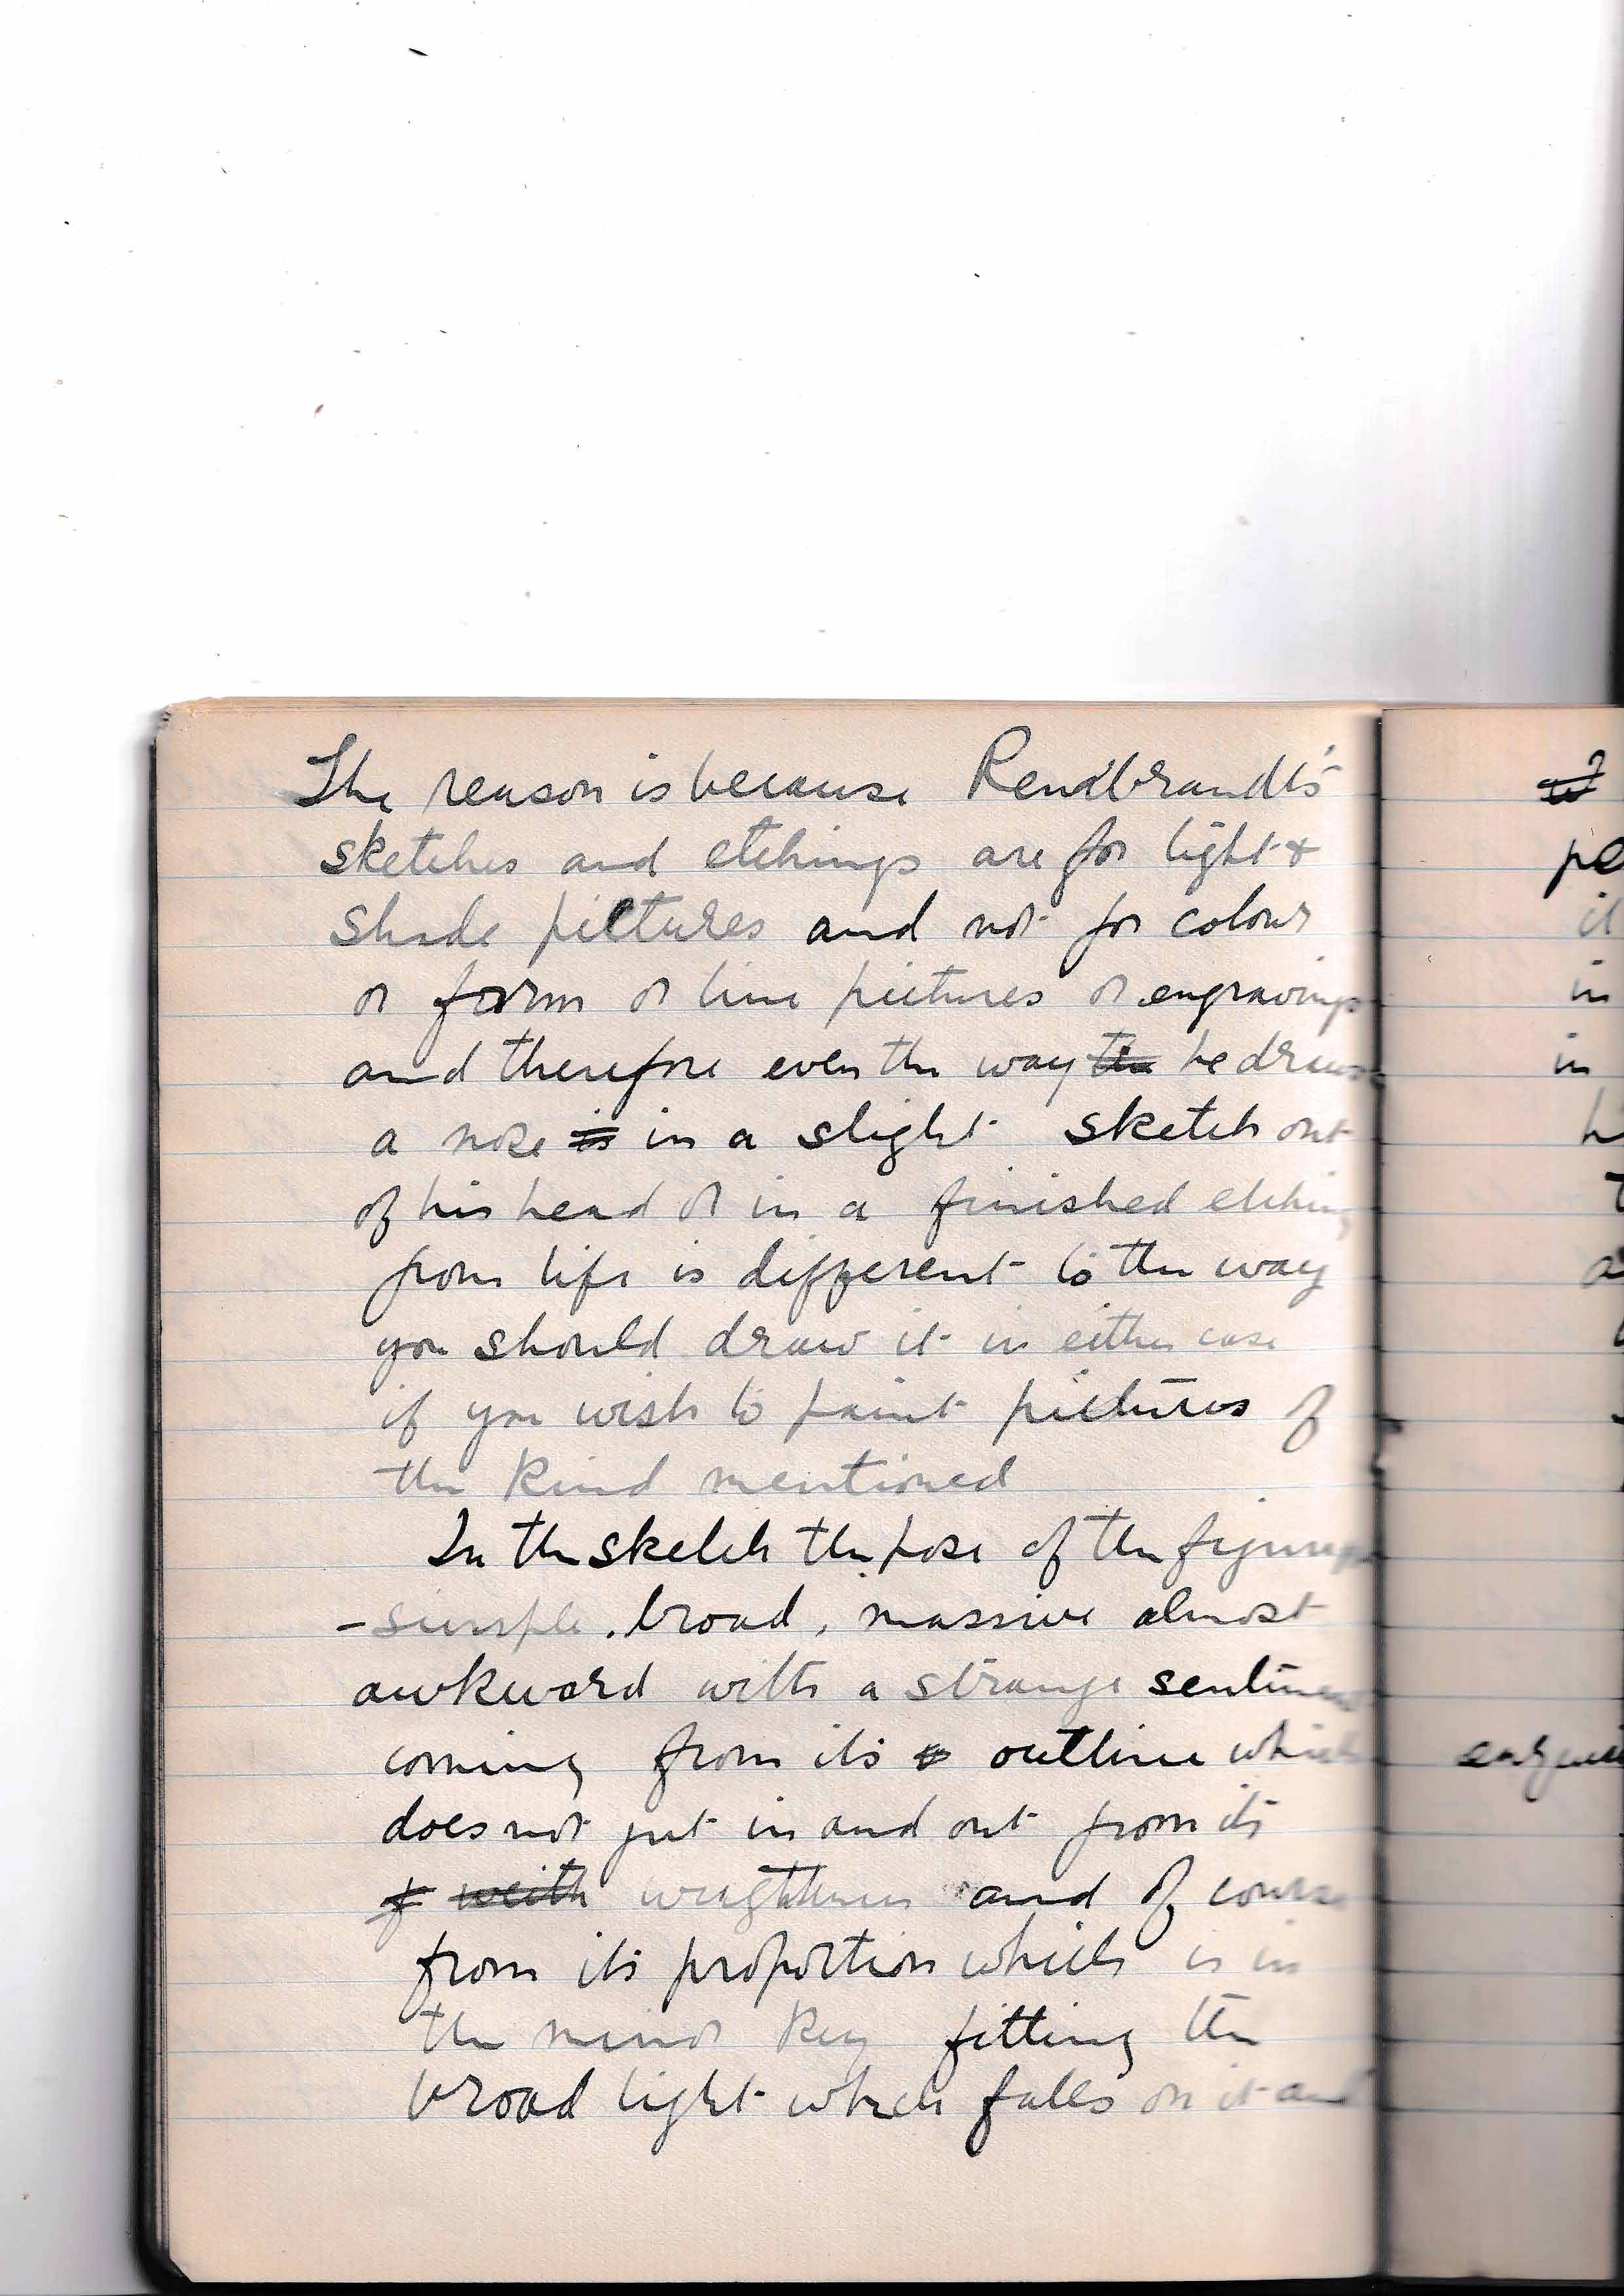 The reason is because Rembrandt's
sketches and etchings are for light &
shade pictures and not for colour
or form or line pictures or engravings
and therefore even the way the he draws
a nose is in a slight sketch out
of his head or in a finished etching
from life is different to the way
you should draw it in either case
if you wish to paint pictures of
the kind mentioned
In the sketch the pose of the figure
- simple. broad, massive almost
awkward with a strange sentiment
coming from its outline which
does not jut in and out from its
with and of course
from its proportion which is in
the minor key fitting the
broad light which falls on it and